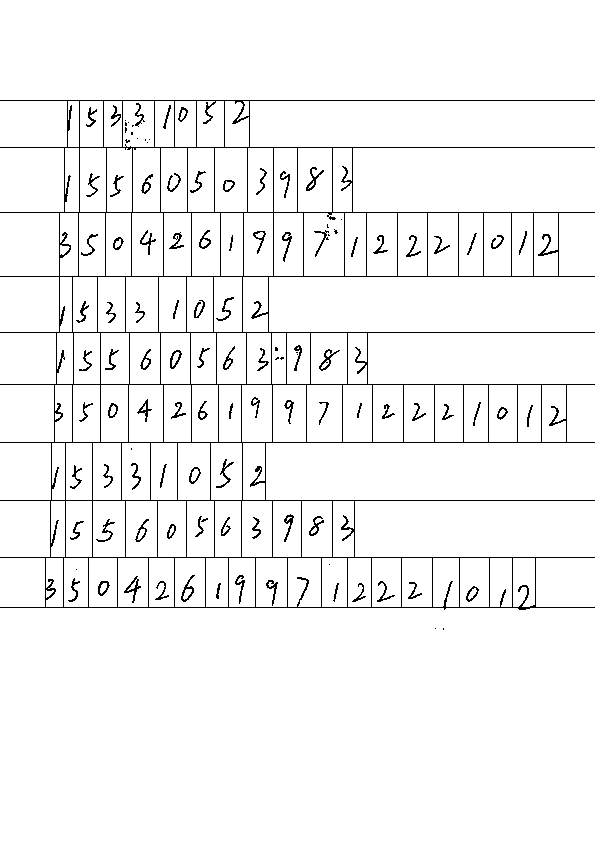 15331052
15560503983
350426199712221012
15331052
15560563983
350426199712221012
15331052
15560563983
350426199712221012